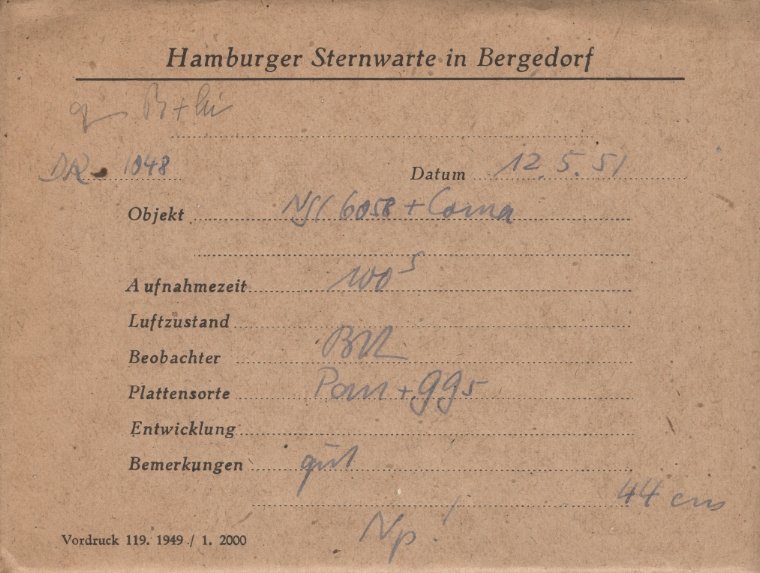 Hamburger Sternwarte in Bergedorf
DR 1048
Datum 12. 5. 51
Objekt NGC 6058 + Coma
Aufnahmezeit 100 s
Luftzustand
Beobachter
Plattensorte Pan + gg5
Entwicklung
Bemerkungen gut
44 cm
Np!
Vordruck 119. 1949 / 1. 2000